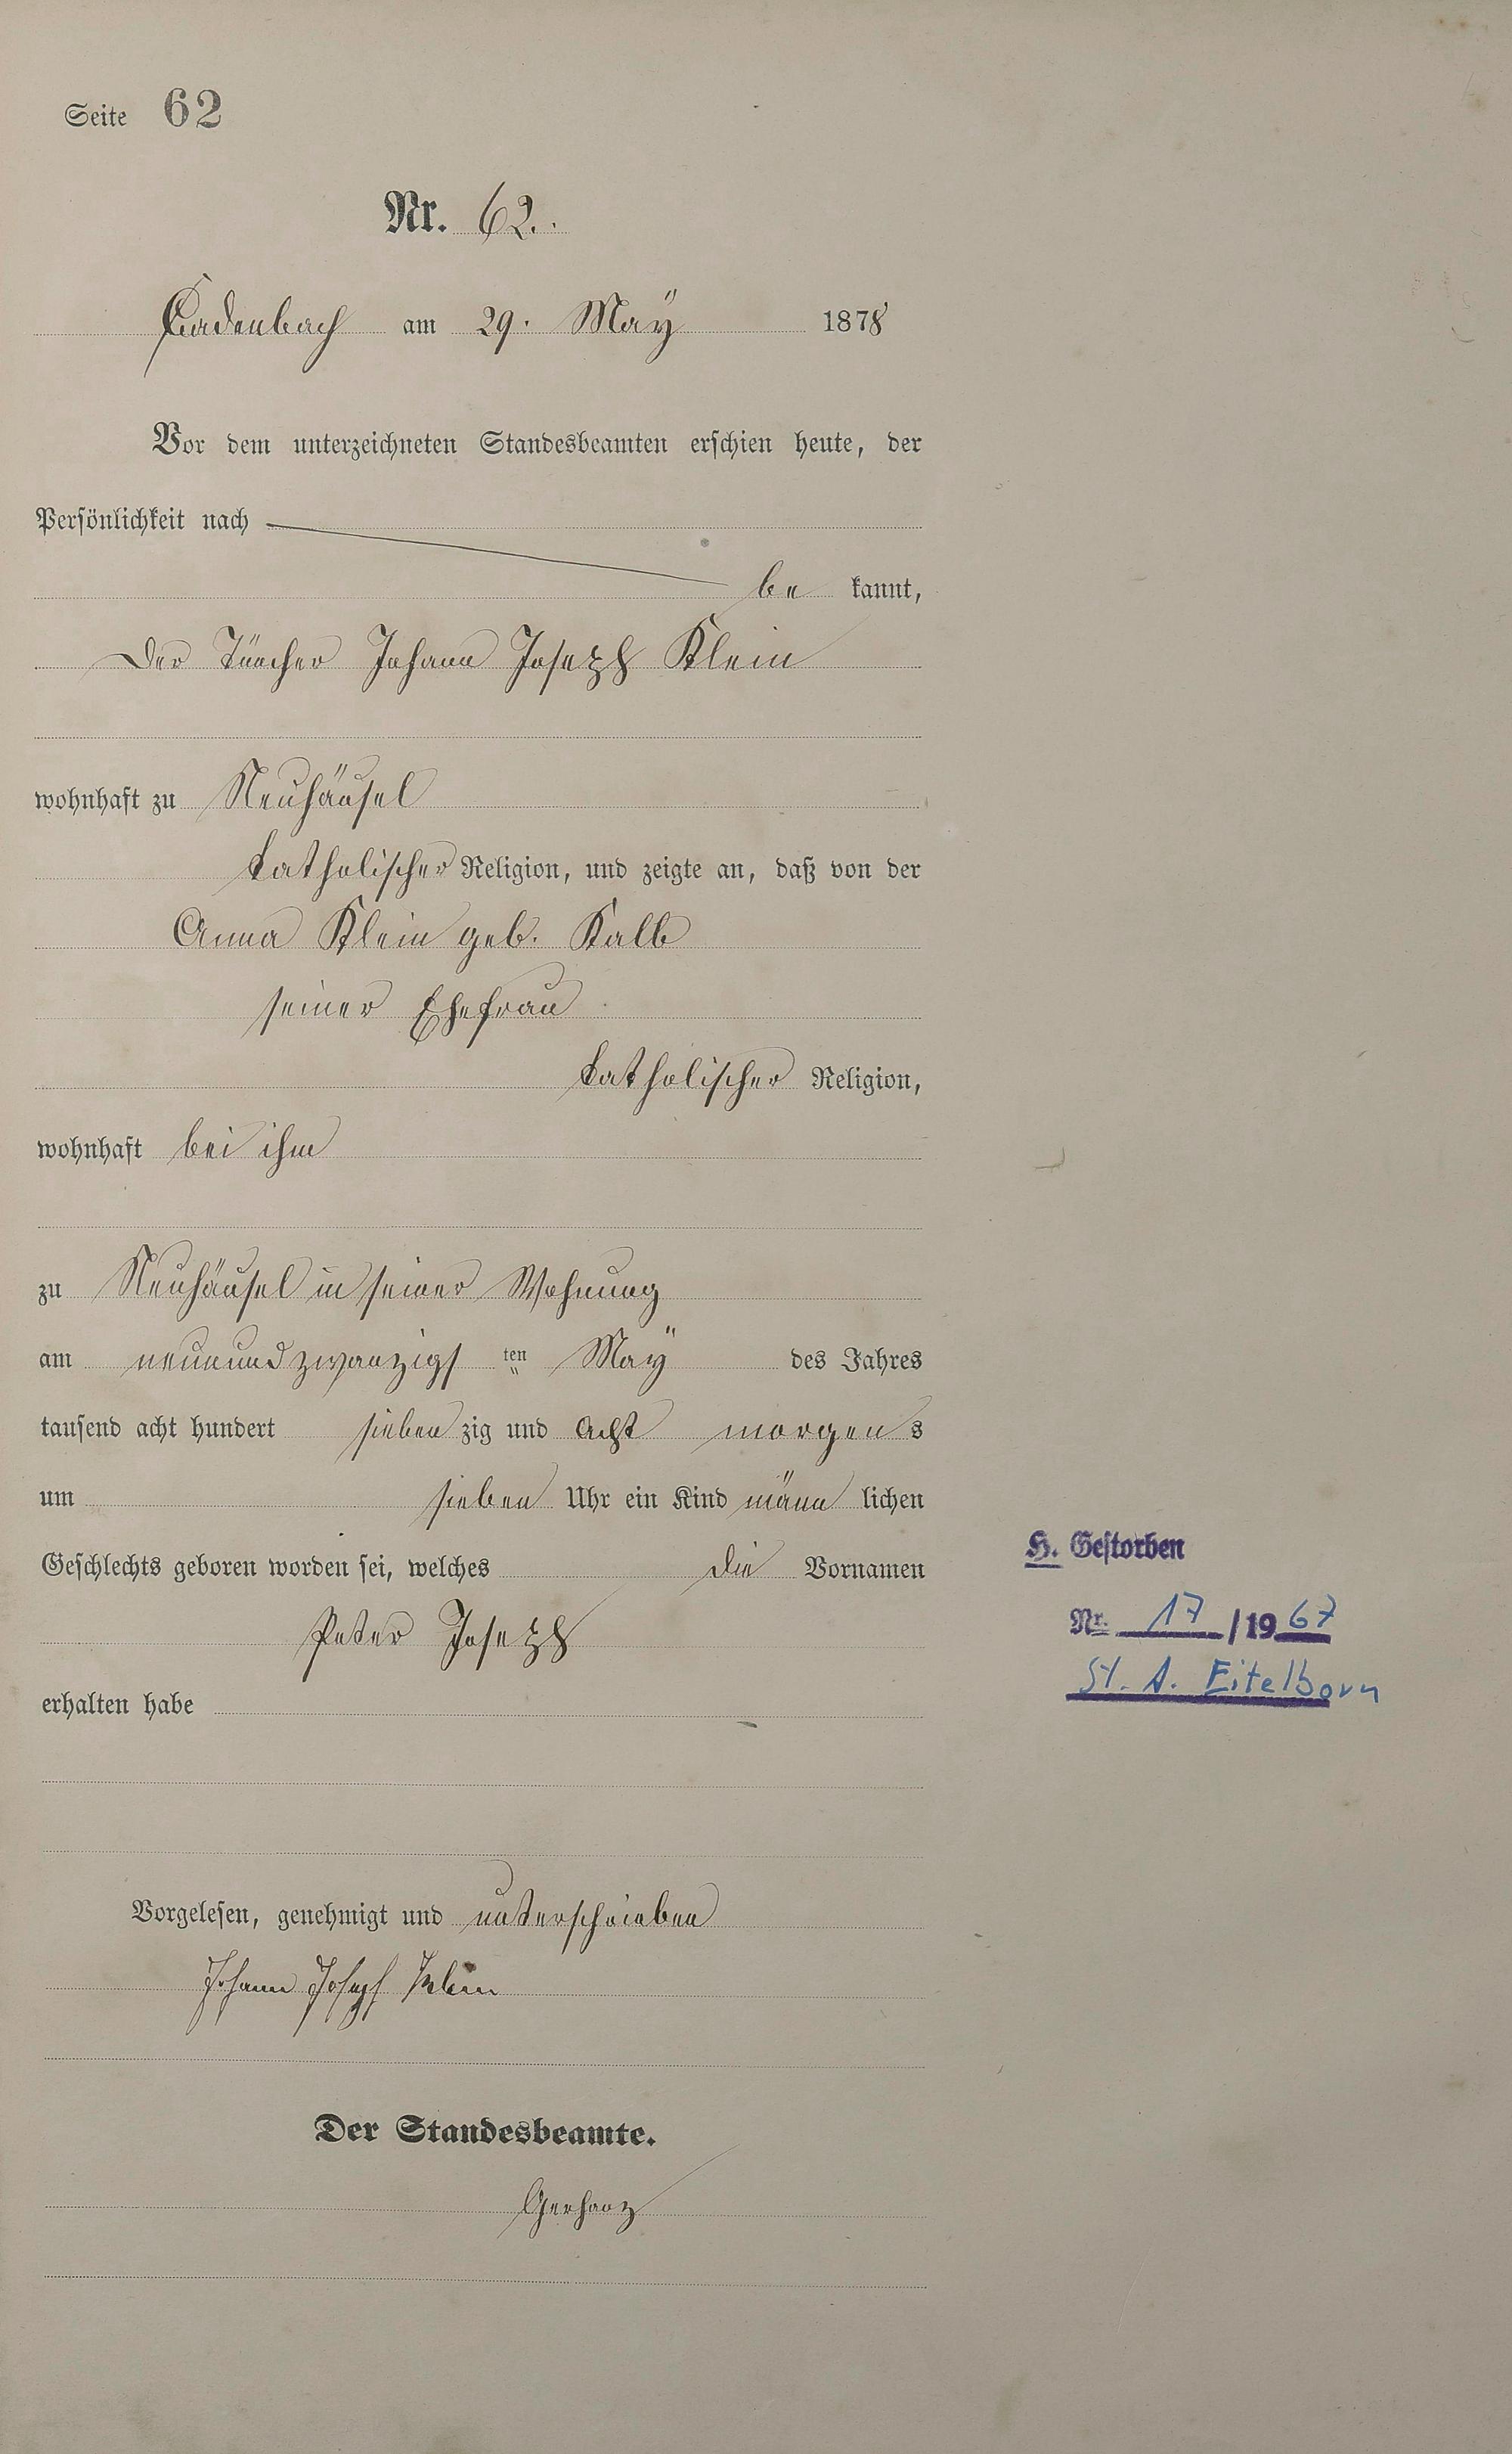 Seite 62
Nr. 62.
Cadenbach am 29. Maÿ 1878
Vor dem unterzeichneten Standesbeamten erschien heute, der
Persönlichkeit nach
be kannt,
Der Tüncher Johann Joseph Klein
wohnhaft zu Neuhäusel
katholischer Religion, und zeigte an, daß von der
Anna Klein geb. Kalb
seiner Ehefrau
katholischer Religion,
wohnhaft bei ihm
zu Neuhäusel in seiner Wohnung
am neunundzwanzigs ten Maÿ des Jahres
tausend acht hundert sieben zig und acht morgen s
um sieben Uhr ein Kind männ lichen
Geschlechts geboren worden sei, welches die Vornamen
Peter Joseph
erhalten habe
H. Gestorben
Nr. 17 / 19 67
St. A. Eitelborn
Vorgelesen, genehmigt und unterschrieben
Johann Joseph Klein
Der Standesbeamte.
Gerharz